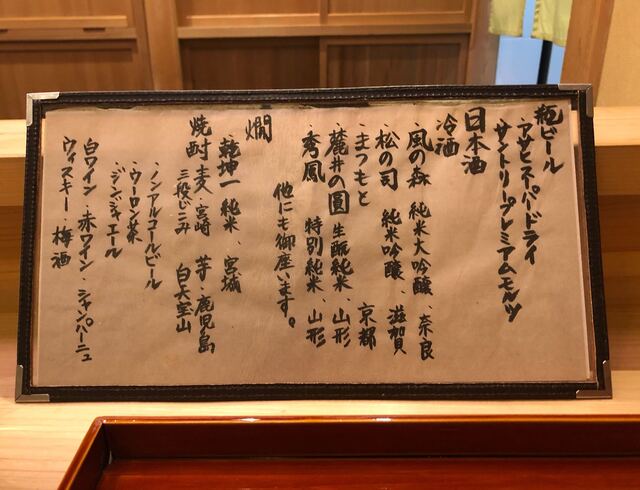 瓶ビール
・アサヒスーパードライ
・サントリープレミアムモルツ
日本酒
冷酒
・風の森 純米大吟醸、奈良
・松の司 純米吟醸、滋賀
・まつもと 京都
・麓井の圓 生酛純米、山形
・秀鳳 特別純米、山形
他にも御座います。
燗
・乾坤一 純米、宮城
焼酎 麦・宮崎 芋・鹿児島
三段じこみ 白天宝山
・ノンアルコールビール
・ウーロン茶
・ジンジャエール
白ワイン・赤ワイン シャンパーニュ
ウィスキー・梅酒